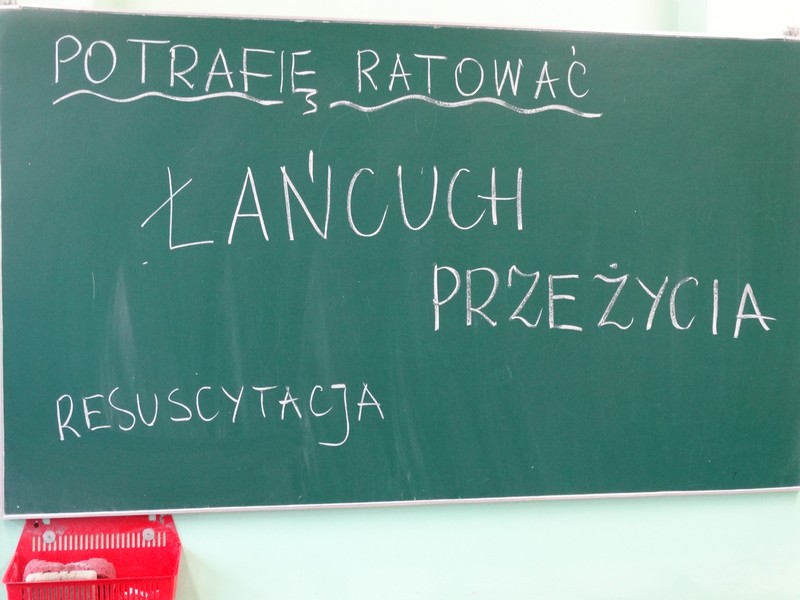 POTRAFIĘ RATOWAĆ
ŁAŃCUCH
PRZEŻYCIA
RESUSCYTACJA